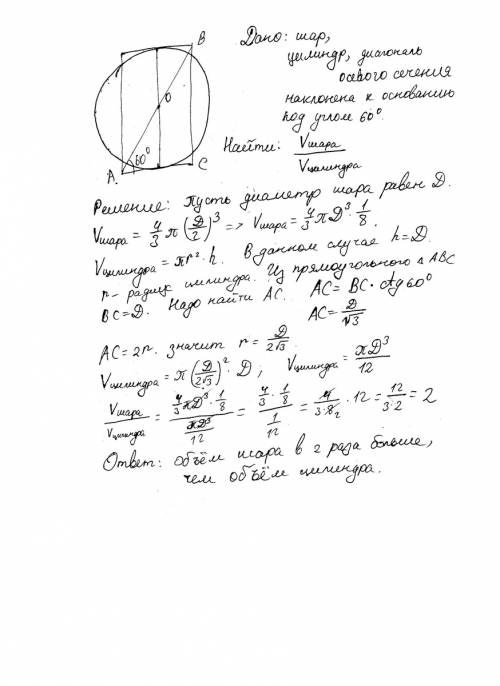 B
O
60°
A
C
Дано: шар,
цилиндр, диагональ
осевого сечения
наклонена к основанию
под углом 60°.
Найти: Vшара / Vцилиндра
Решение: Пусть диаметр шара равен D.
Vшара = 4/3 π (D/2)³ => Vшара = 4/3 πD³ · 1/8.
Vцилиндра = πr² · h. В данном случае h = D.
r – радиус цилиндра. Из прямоугольного Δ ABC
BC = D. Надо найти AC. AC = BC · ctg 60°
AC = D/√3
AC = 2r. значит r = D/2√3
Vцилиндра = π (D/2√3)² · D, Vцилиндра = πD³/12
Vшара/Vцилиндра = (4/3 πD³ · 1/8)/(πD³/12) = (4/3 · 1/8)/(1/12) = 4/(3·8₂) · 12 = 12/(3·2) = 2
Ответ: объём шара в 2 раза больше,
чем объём цилиндра.